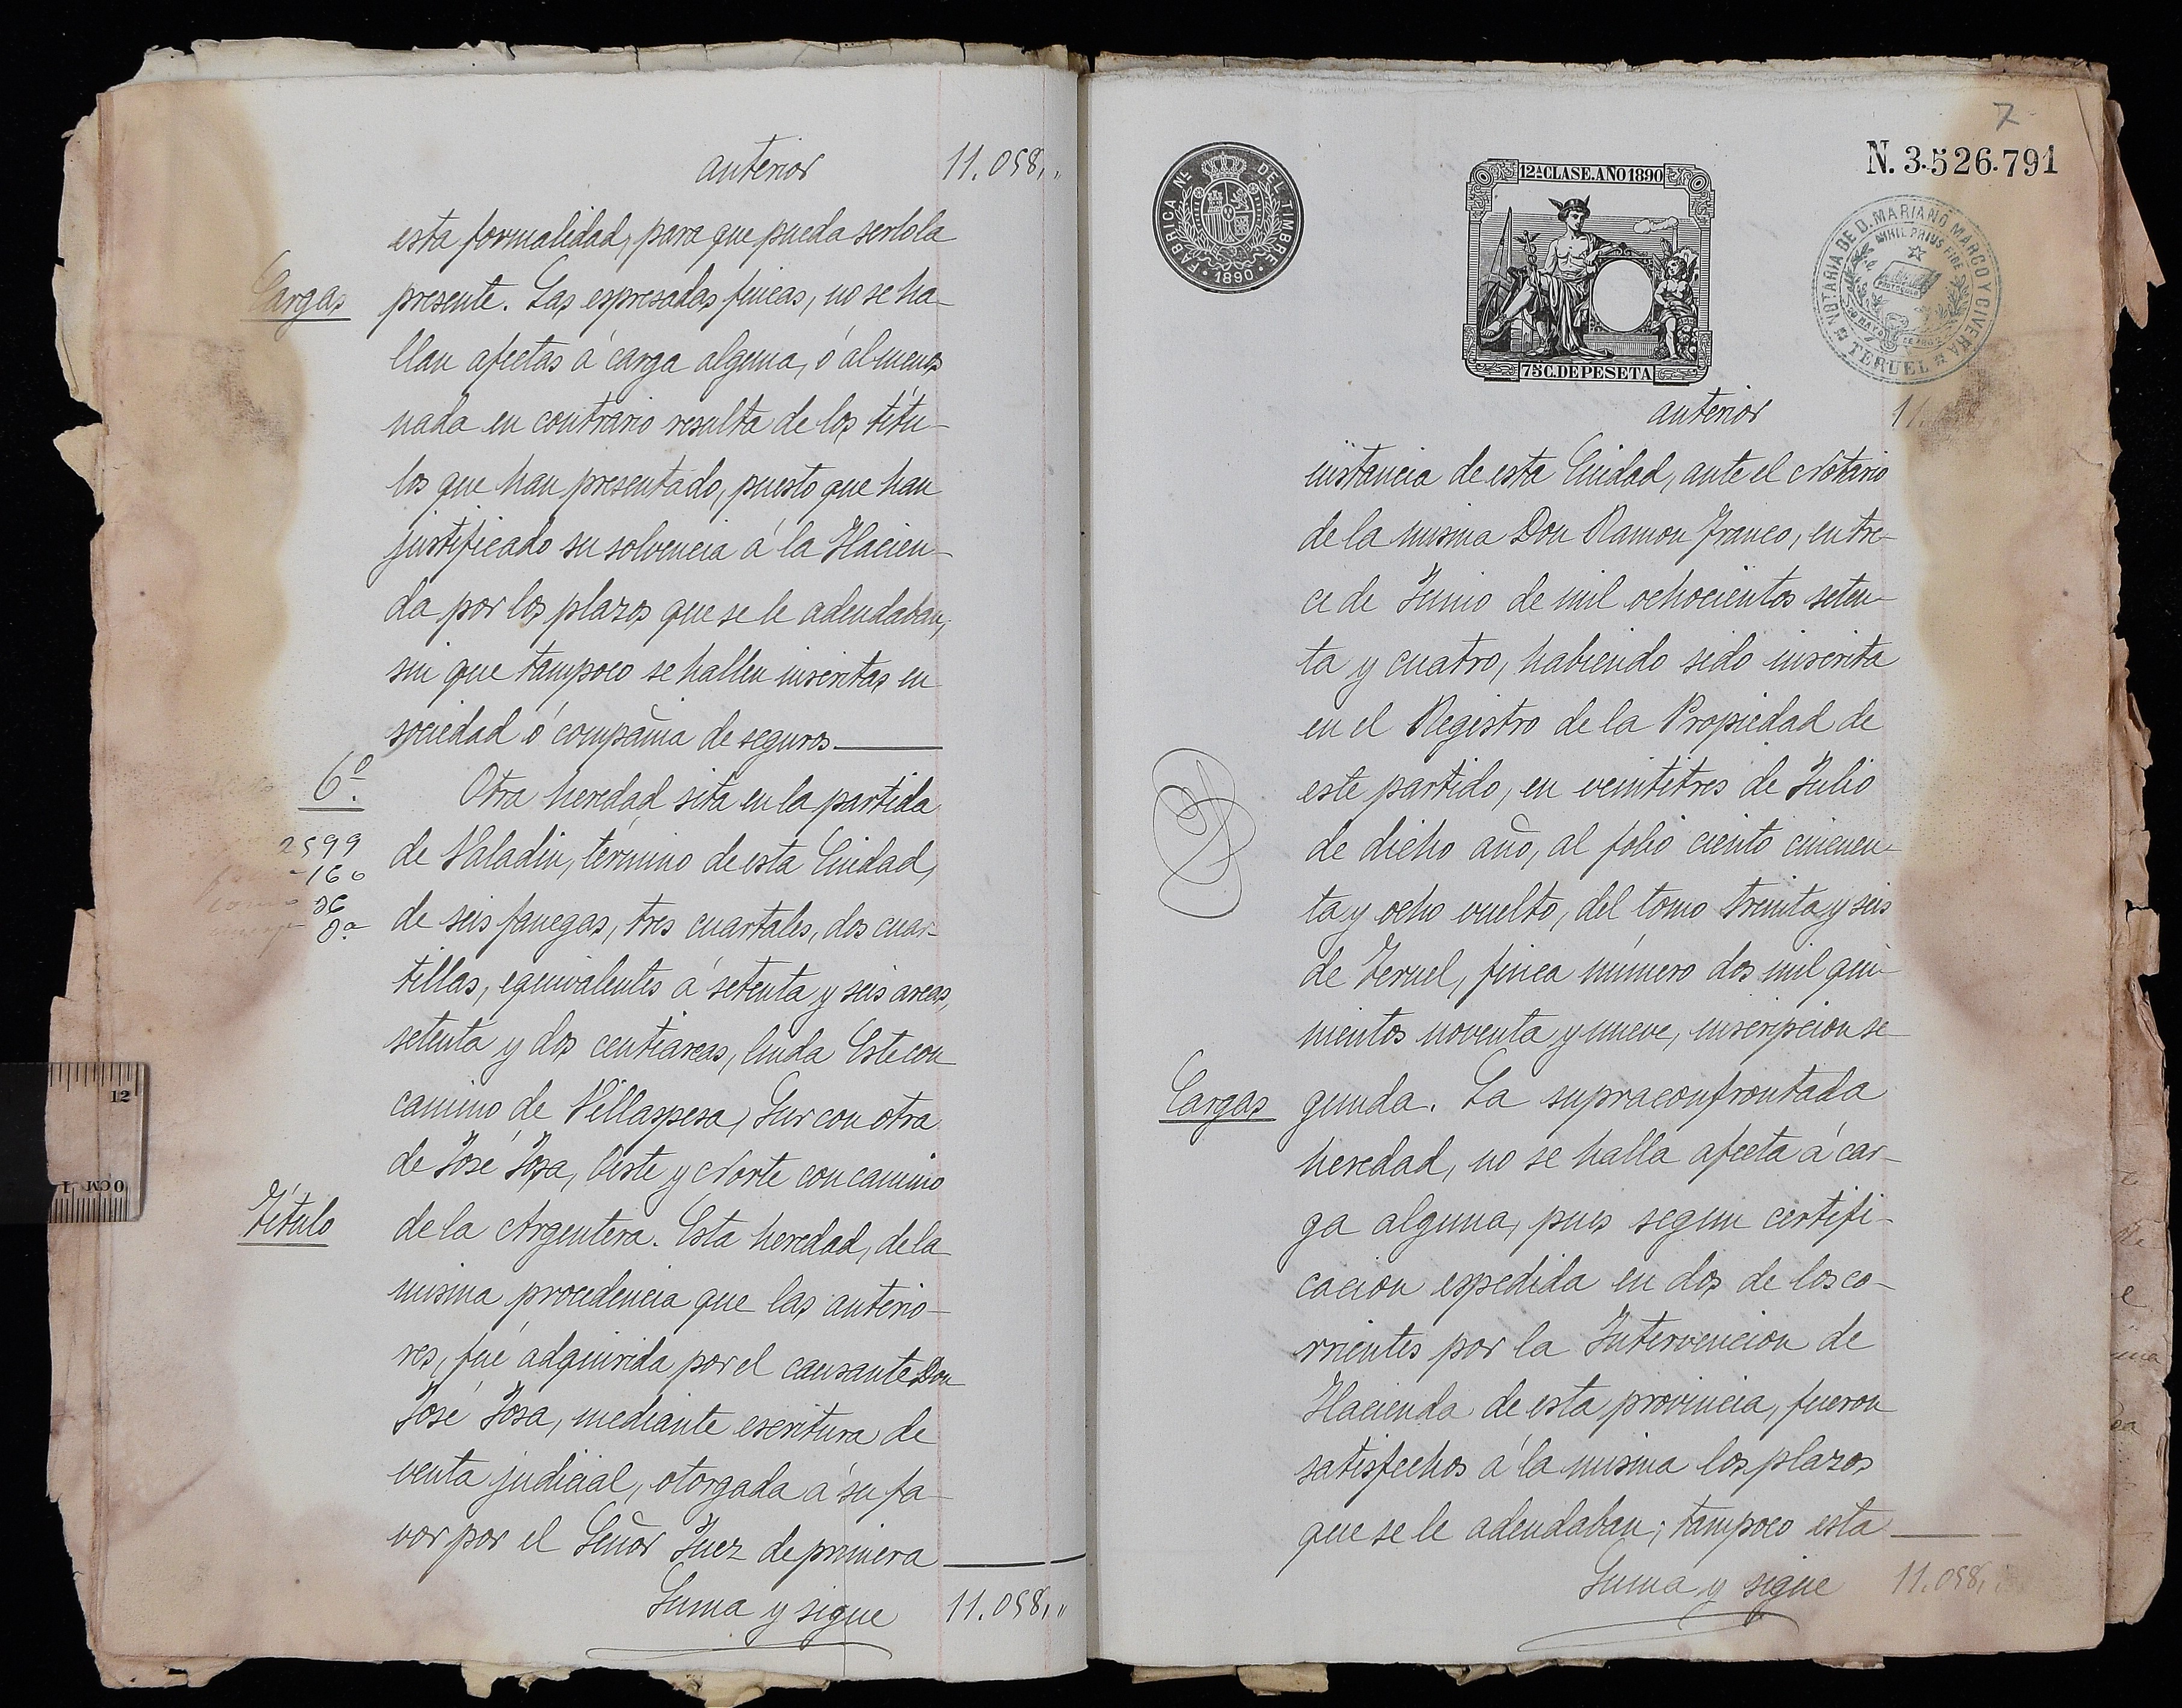 anterior 11.058,,
esta formalidad, para que pueda serlo la
Cargas presente. Las espresadas fincas, no se ha-
llan afectas á carga alguna, ó al menos
nada en contrario resulta de los títu-
los que han presentado, puesto que han
justificado su solvencia á la Hacien-
da por los plazos que se le adeudaban,
sin que tampoco se hallen inscritas en
sociedad ó compañia de seguros
6ª. Otra heredad sita en la partida
2599 de Valadin, término de esta Ciudad,
160
36 de seis fanegas, tres cuartales, dos cuar-
2ª
tillas, equivalentes á setenta y seis areas,
setenta y dos centiareas, linda Este con
camino de Villaspesa, Sur con otra
de José Josa, Oeste y Norte con camino
Título de la Argentera. Esta heredad, de la
misma procedencia que las anterio-
res, fué adquirida por el causante Don
José Josa, mediante escritura de
venta judicial, otorgada á su fa-
vor por el Señor Juez de primera
Suma y sigue 11.058,,
7
N. 3.526.791
FABRICA NL. DEL TIMBRE
1890
12ª CLASE. AÑO 1890
75 C. DE PESETA
NOTARIA DE D. MARIANO MARCO Y CIVERA
NIHIL PRIUS FIDE
TERUEL
anterior 11.
instancia de esta Ciudad, ante el Notario
de la misma Don Ramon Franco, en tre-
ce de Junio de mil ochocientos seten-
ta y cuatro, habiendo sido inscrita
en el Registro de la Propiedad de
este partido, en veintitres de Julio
de dicho año, al folio ciento cincuen-
ta y ocho vuelto, del tomo treinta y seis
de Teruel, finca número dos mil qui-
nientos noventa y nueve, inscripcion se-
Cargas gunda. La supraconfrontada
heredad, no se halla afecta á car-
ga alguna, pues segun certifi-
cacion espedida en dos de los co-
rrientes por la Intervencion de
Hacienda de esta provincia, fueron
satisfechos á la misma los plazos
que se le adeudaban; tampoco esta
Suma y sigue 11.058,